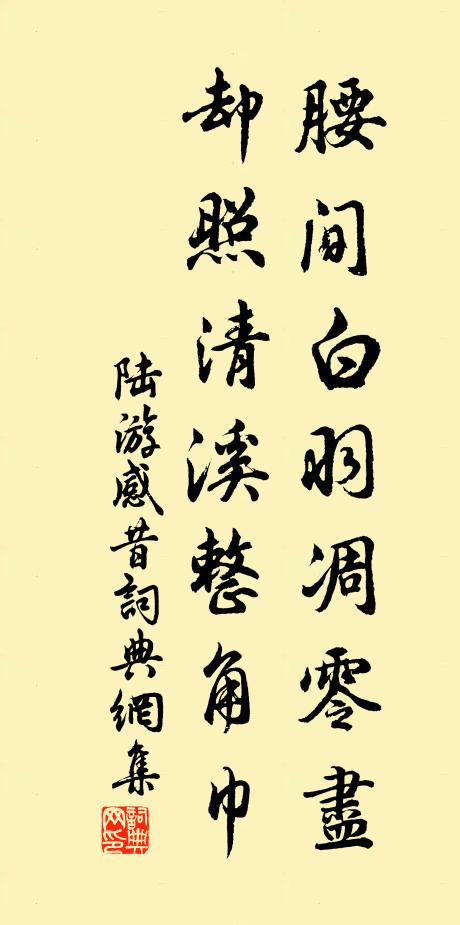 腰间白羽凋零盡
却照清溪整角巾
陆游感昔詞典網集
詞典網印